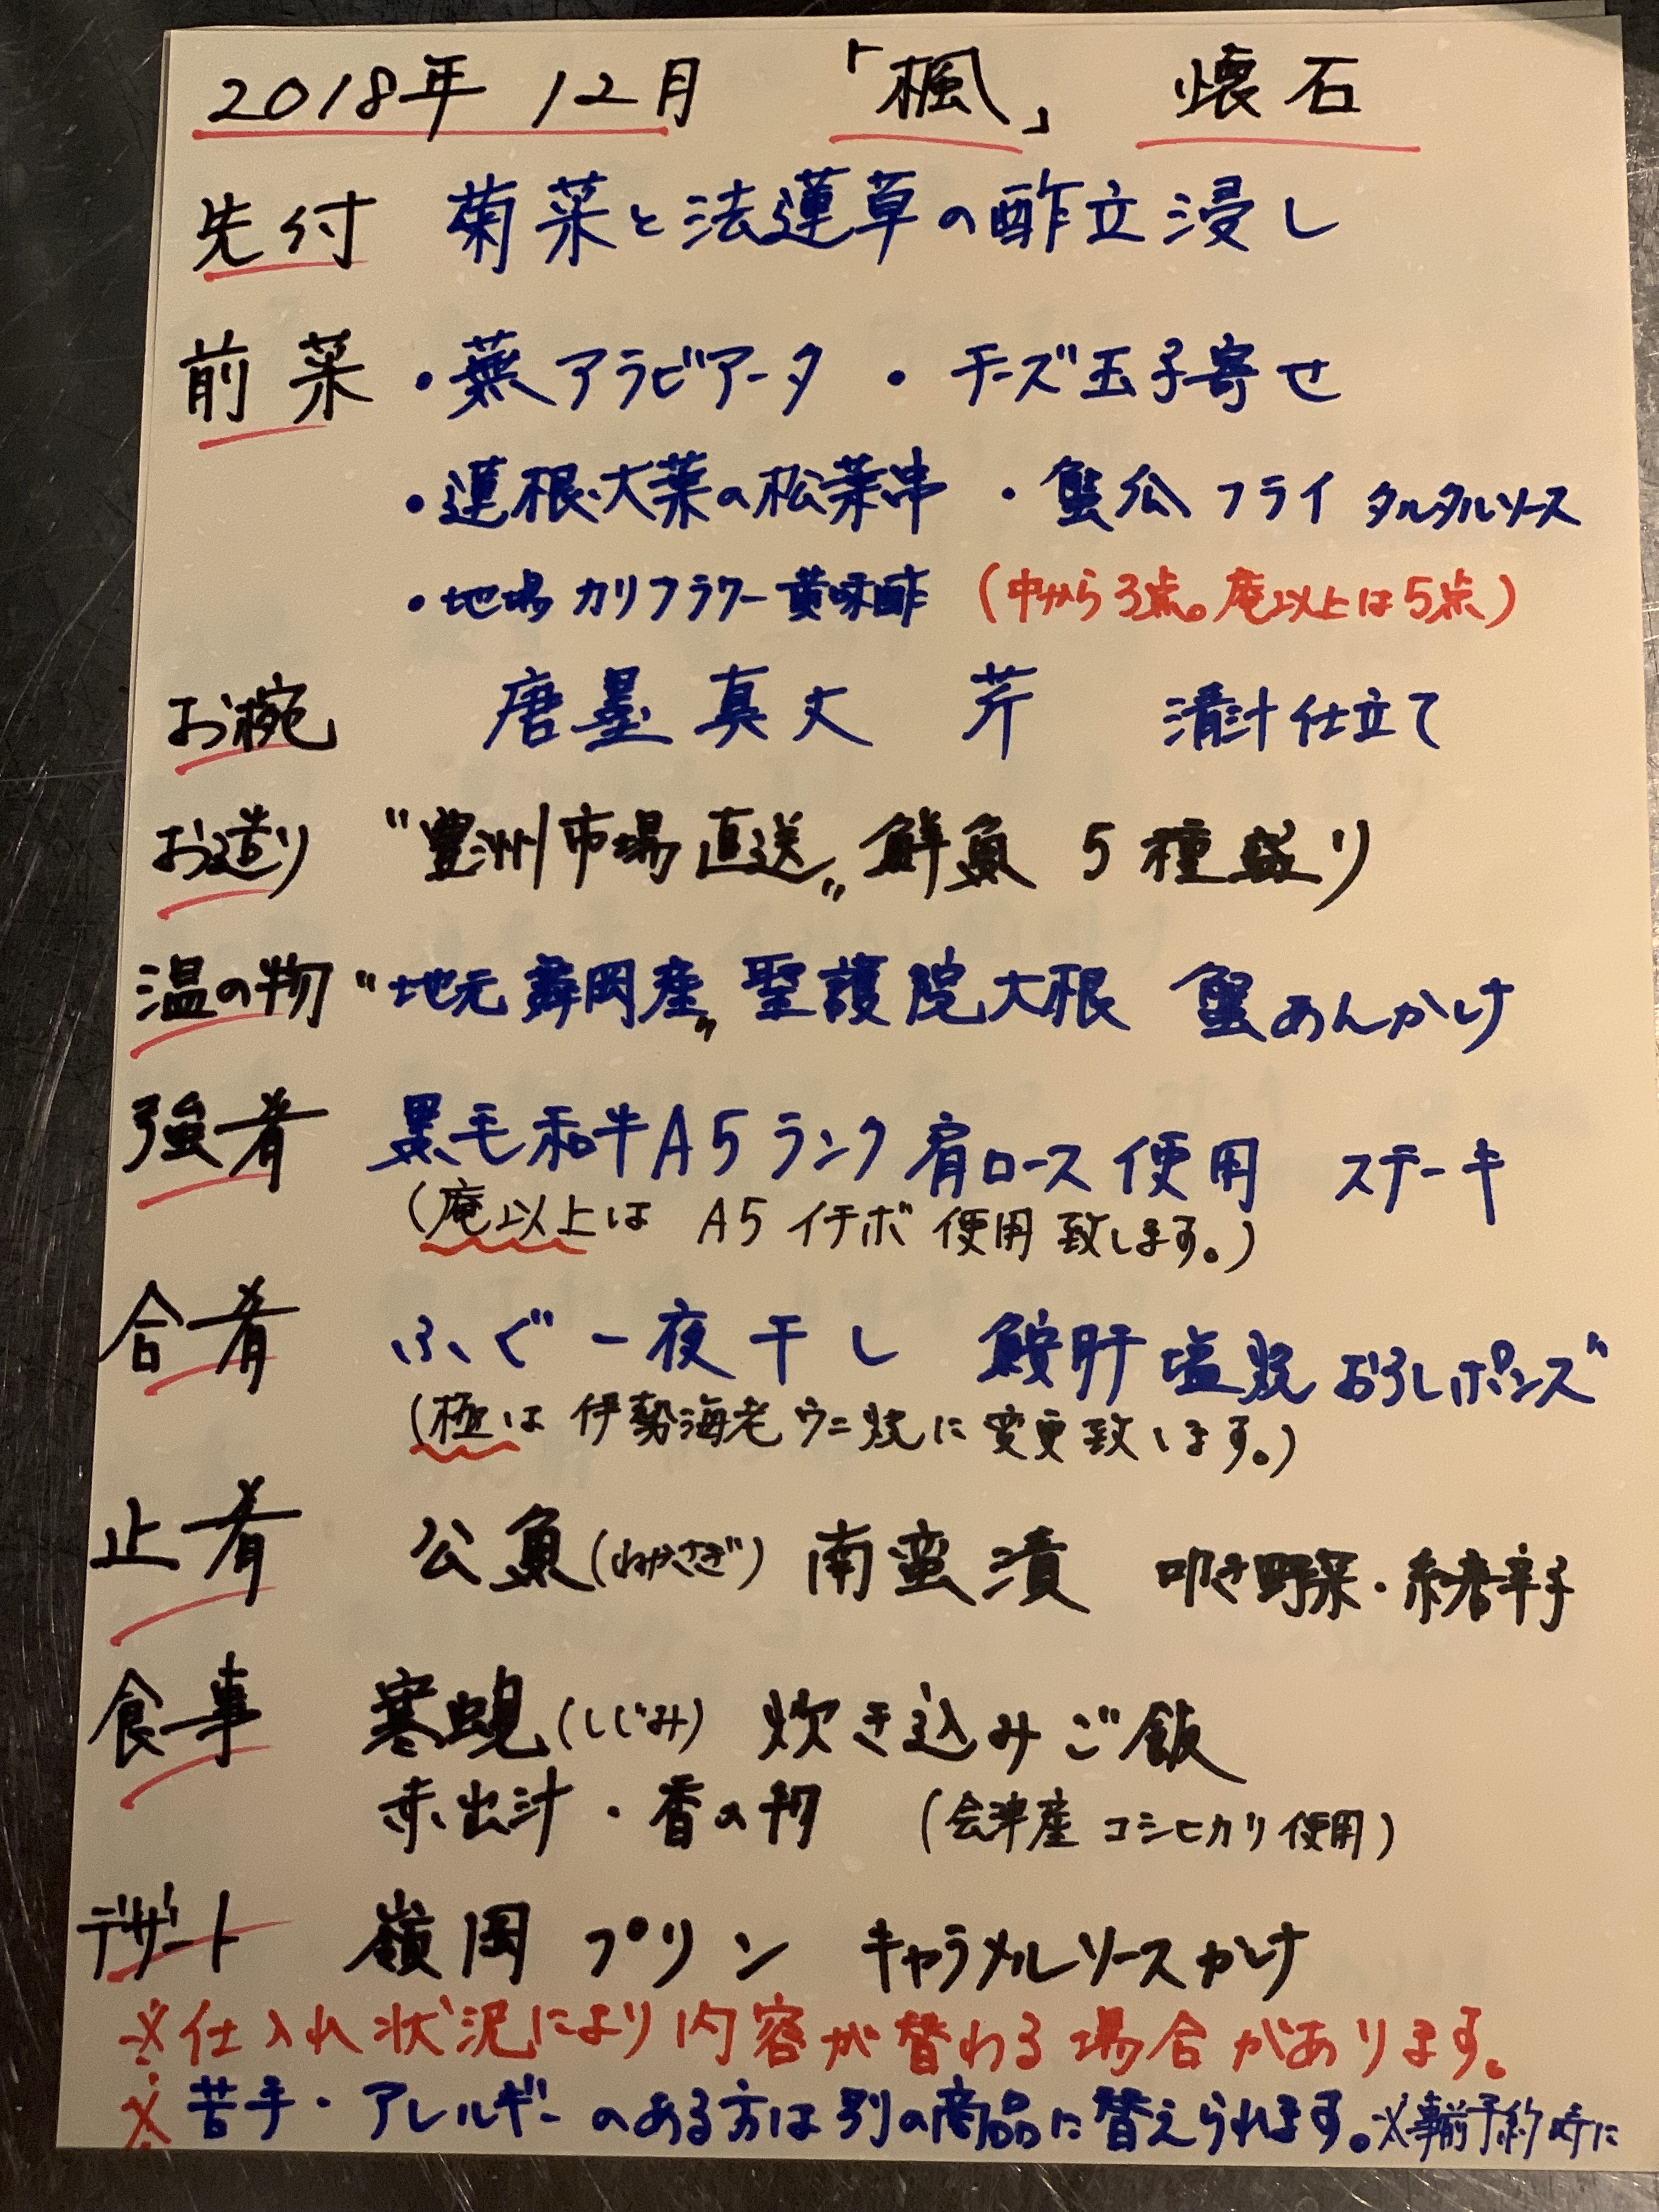 2018年 12月 「楓」 懐石
先付 菊菜と法蓮草の酢立浸し
前菜 ・蕪アラビアータ ・チーズ玉子寄せ
・蓮根大葉の松葉串 ・蟹公フライ タルタルソース
・地場カリフラワー黄味酢 (中から3点。庵以上は5点)
お椀 唐墨真丈 芹 清汁仕立て
お造り “豊洲市場直送„ 鮮魚 5種盛り
温の物 “地元舞岡産„ 聖護院大根 蟹あんかけ
強肴 黒毛和牛A5ランク肩ロース使用 ステーキ
(庵以上は A5イチボ使用致します。)
合肴 ふぐ一夜干し 鮟肝塩焼 おろしポンズ
(極は伊勢海老ウニ焼に変更致します。)
止肴 公魚(わかさぎ)南蛮漬 叩き野菜・糸唐辛子
食事 寒蜆(しじみ) 炊き込みご飯
赤出汁・香の物 (会津産コシヒカリ使用)
デザート 嶺岡プリン キャラメルソースかけ
※仕入れ状況により内容が替わる場合があります。
※苦手・アレルギーのある方は別の商品に替えられます。※事前予約時に